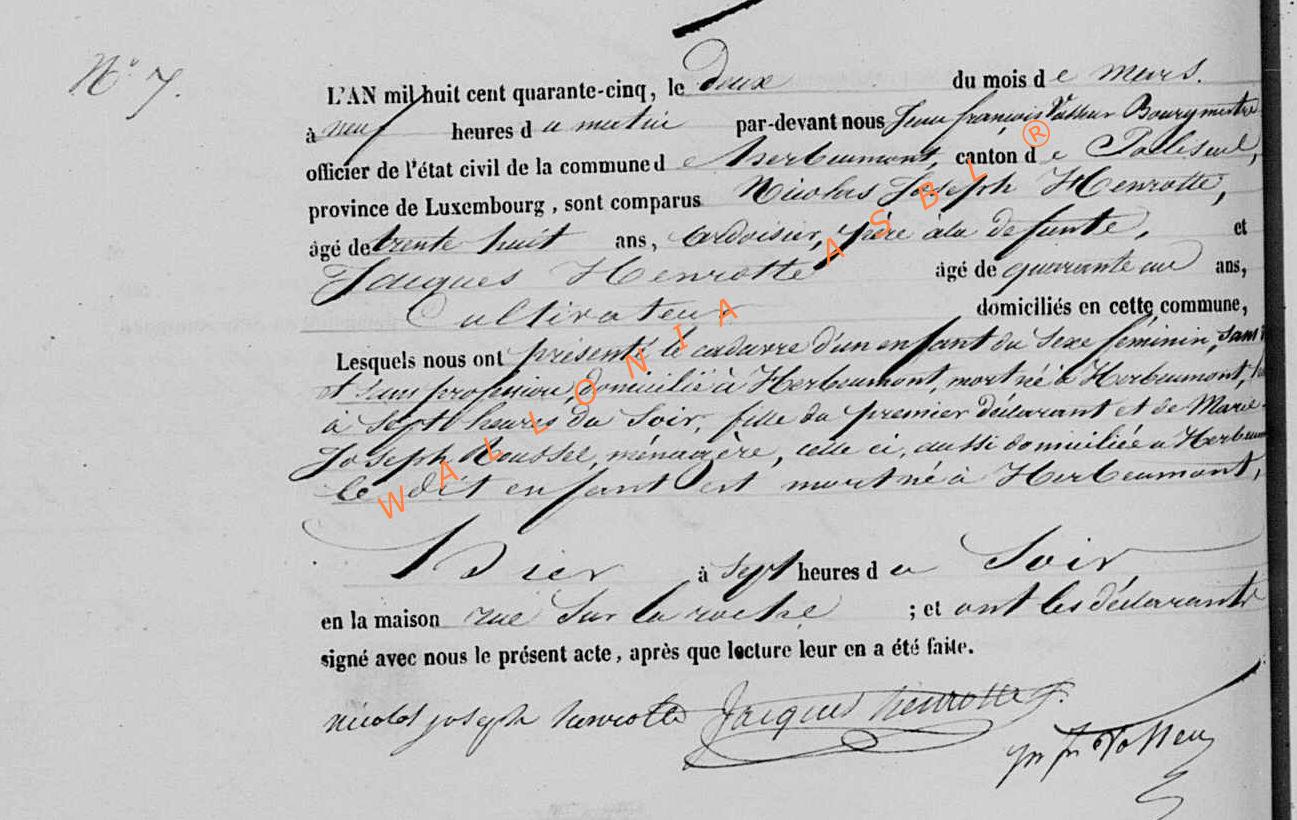 N° 7.
L'AN mil huit cent quarante-cinq, le deux du mois de mars.
à neuf heures du matin par-devant nous Jean françois Tasseur Bourgmestre
officier de l'état civil de la commune de herbeumont, canton de Paliseul,
province de Luxembourg, sont comparus Nicolas Joseph Henrotte,
âgé de trente huit ans, ardoisier, père à la defunte, et
Jacques Henrotte âgé de quarante un ans,
Cultivateur domiciliés en cette commune,
Lesquels nous ont présenté le cadavre d'un enfant du sexe féminin, sans
et sans profession, domicilié à Herbeumont, mort né à Herbeumont,
à Sept heures du Soir, fille du premier déclarant et de Marie
Joseph Rousser, ménagère, celle ci, aussi domiciliée a Herbeum
le dit enfant est mort né à Herbeumont,
Hier à sept heures du Soir
en la maison rue Sur la roche ; et ont les déclarants
signé avec nous le présent acte, après que lecture leur en a été faite.
nicolas joseph henrotte Jacques henrotte
WALLONIA ASBL ®